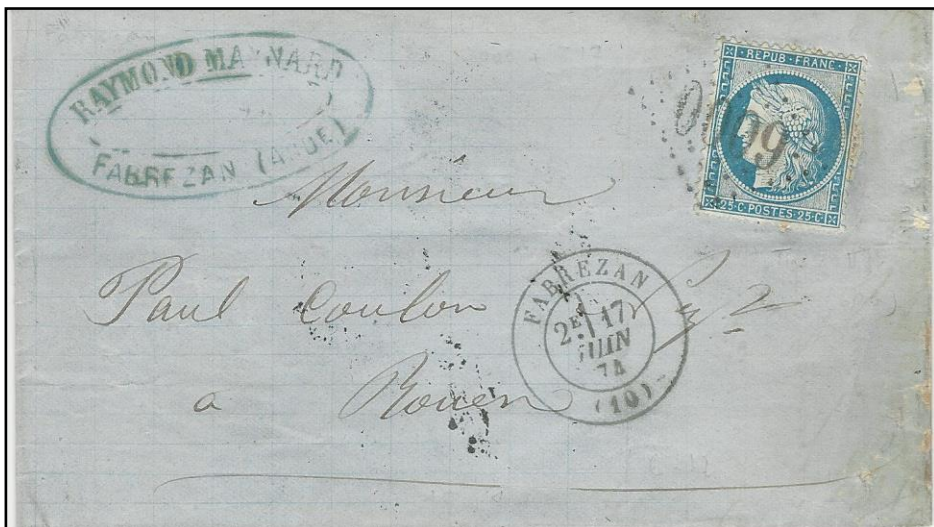 RAYMOND MAYNARD
FABREZAN (AUDE)
REPUB·FRANC
6009
25·C·POSTES·25·C
Monsieur
Paul Coulon
a Rouen
FABREZAN
2E
17
JUIN
74
(10)